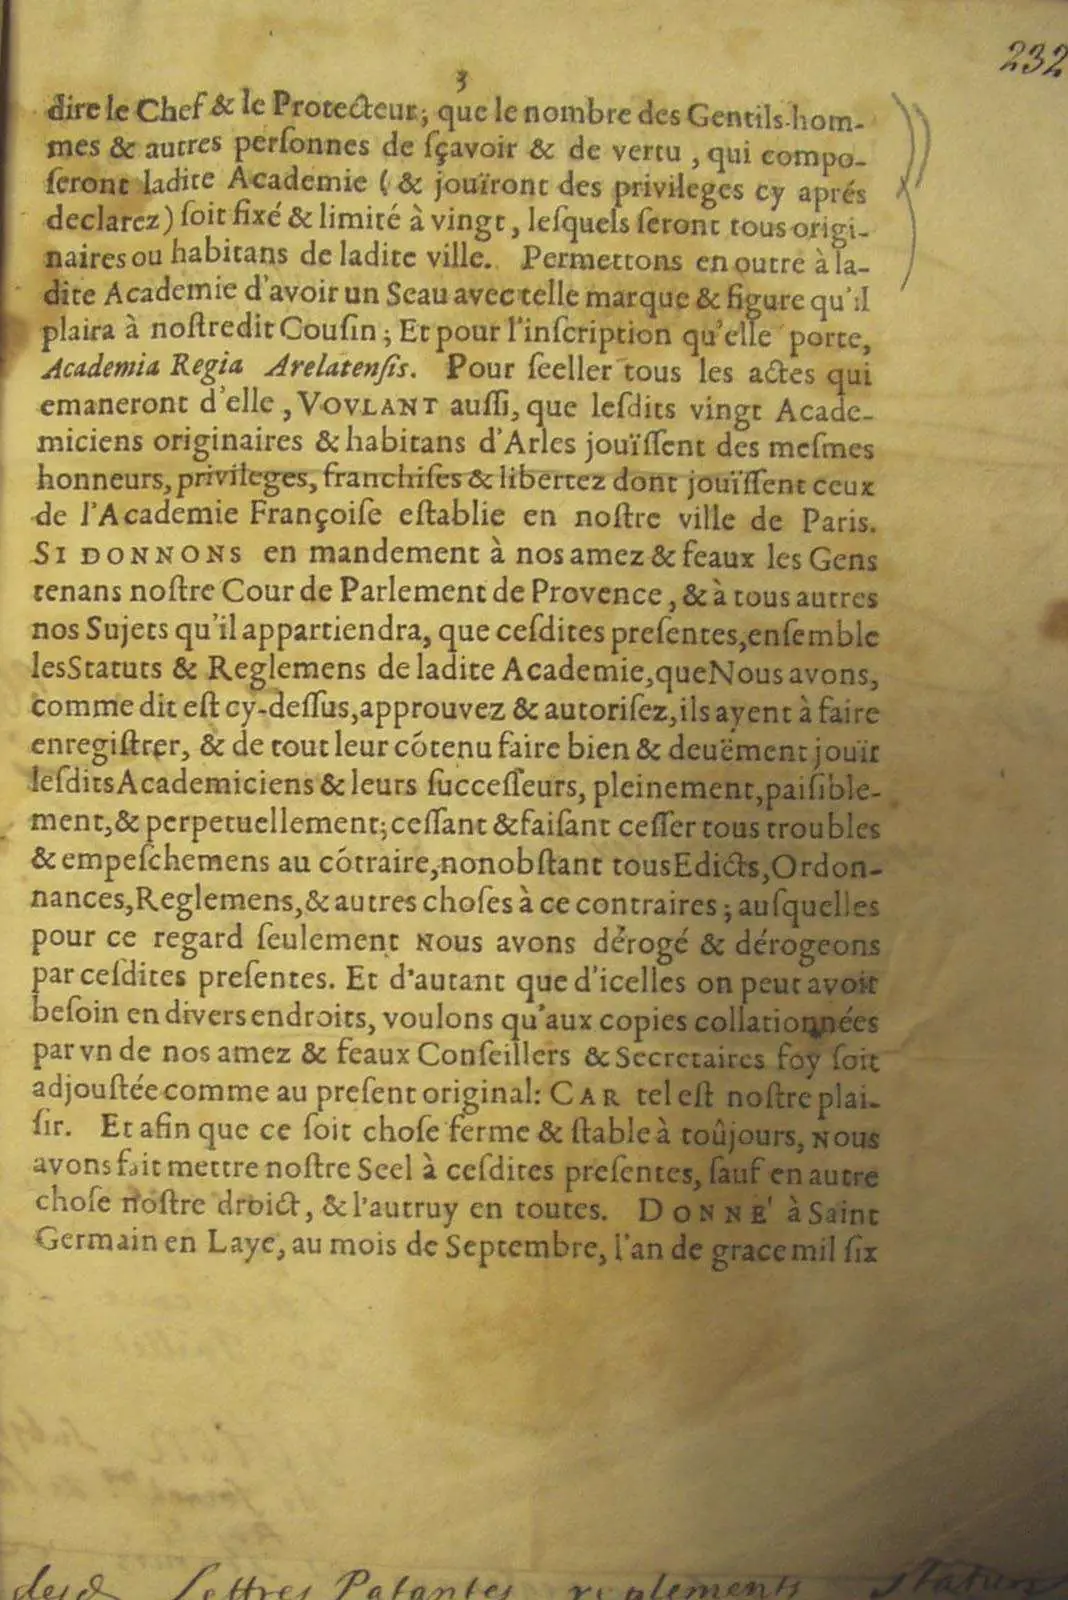 232
3
dire le Chef & le Protecteur; que le nombre des Gentils-hom-
mes & autres perſonnes de ſçavoir & de vertu, qui compo-
ſeront ladite Academie (& jouïront des privileges cy aprés
declarez) ſoit fixé & limité à vingt, leſquels ſeront tous origi-
naires ou habitans de ladite ville. Permettons en outre à la-
dite Academie d'avoir un Seau avec telle marque & figure qu'il
plaira à noſtredit Couſin; Et pour l'inſcription qu'elle porte,
Academia Regia Arelatenſis. Pour ſeeller tous les actes qui
emaneront d'elle, VOVLANT auſſi, que leſdits vingt Acade-
miciens originaires & habitans d'Arles jouïſſent des meſmes
honneurs, privileges, franchiſes & libertez dont jouïſſent ceux
de l'Academie Françoiſe eſtablie en noſtre ville de Paris.
SI DONNONS en mandement à nos amez & feaux les Gens
tenans noſtre Cour de Parlement de Provence, & à tous autres
nos Sujets qu'il appartiendra, que ceſdites preſentes, enſemble
les Statuts & Reglemens de ladite Academie, que Nous avons,
comme dit eſt cy-deſſus, approuvez & autoriſez, ils ayent à faire
enregiſtrer, & de tout leur cótenu faire bien & deuëment jouïr
leſdits Academiciens & leurs ſucceſſeurs, pleinement, paiſible-
ment, & perpetuellement; ceſſant & faiſant ceſſer tous troubles
& empeſchemens au cótraire, nonobſtant tous Edicts, Ordon-
nances, Reglemens, & autres choſes à ce contraires; auſquelles
pour ce regard ſeulement NOUS avons dérogé & dérogeons
par ceſdites preſentes. Et d'autant que d'icelles on peut avoir
beſoin en divers endroits, voulons qu'aux copies collationnées
par vn de nos amez & feaux Conſeillers & Secretaires foy ſoit
adjouſtée comme au preſent original: CAR tel eſt noſtre plai-
ſir. Et afin que ce ſoit choſe ferme & ſtable à toûjours, NOUS
avons fait mettre noſtre Seel à ceſdites preſentes, ſauf en autre
choſe noſtre droict, & l'autruy en toutes. DONNE' à Saint
Germain en Laye, au mois de Septembre, l'an de grace mil ſix
Lettres Patantes reglements statuts